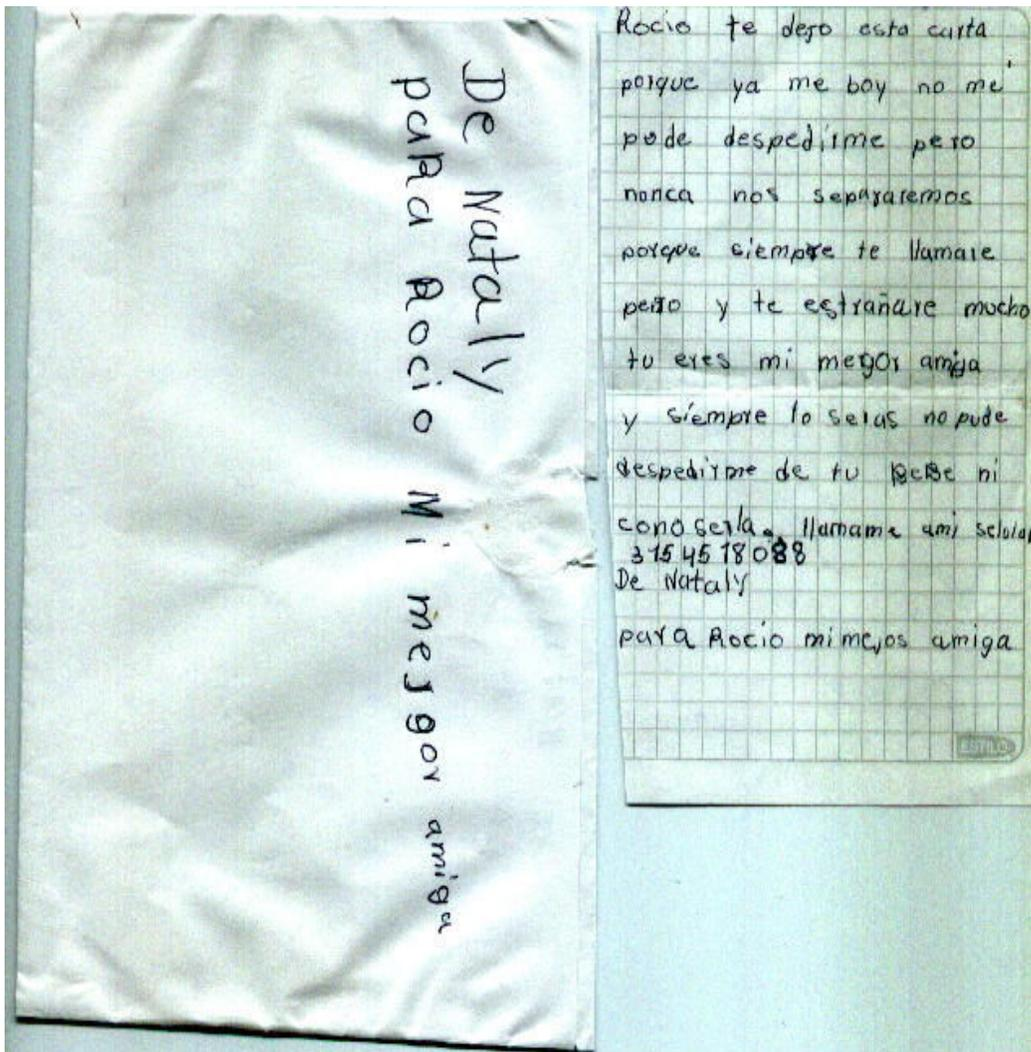 De Nataly
para Rocio Mi mejgor amiga
Rocio te dejo esta carta
porque ya me boy no me
pude despedirme pero
nonca nos separaremos
porque siempre te llamare
pero y te estrañare mucho
tu eres mi megor amiga
y siempre lo seras no pude
despedirme de tu BeBe ni
conoserla. llamame ami selular
315 45 18088
De Nataly
para Rocio mi mejos amiga
ESTILO